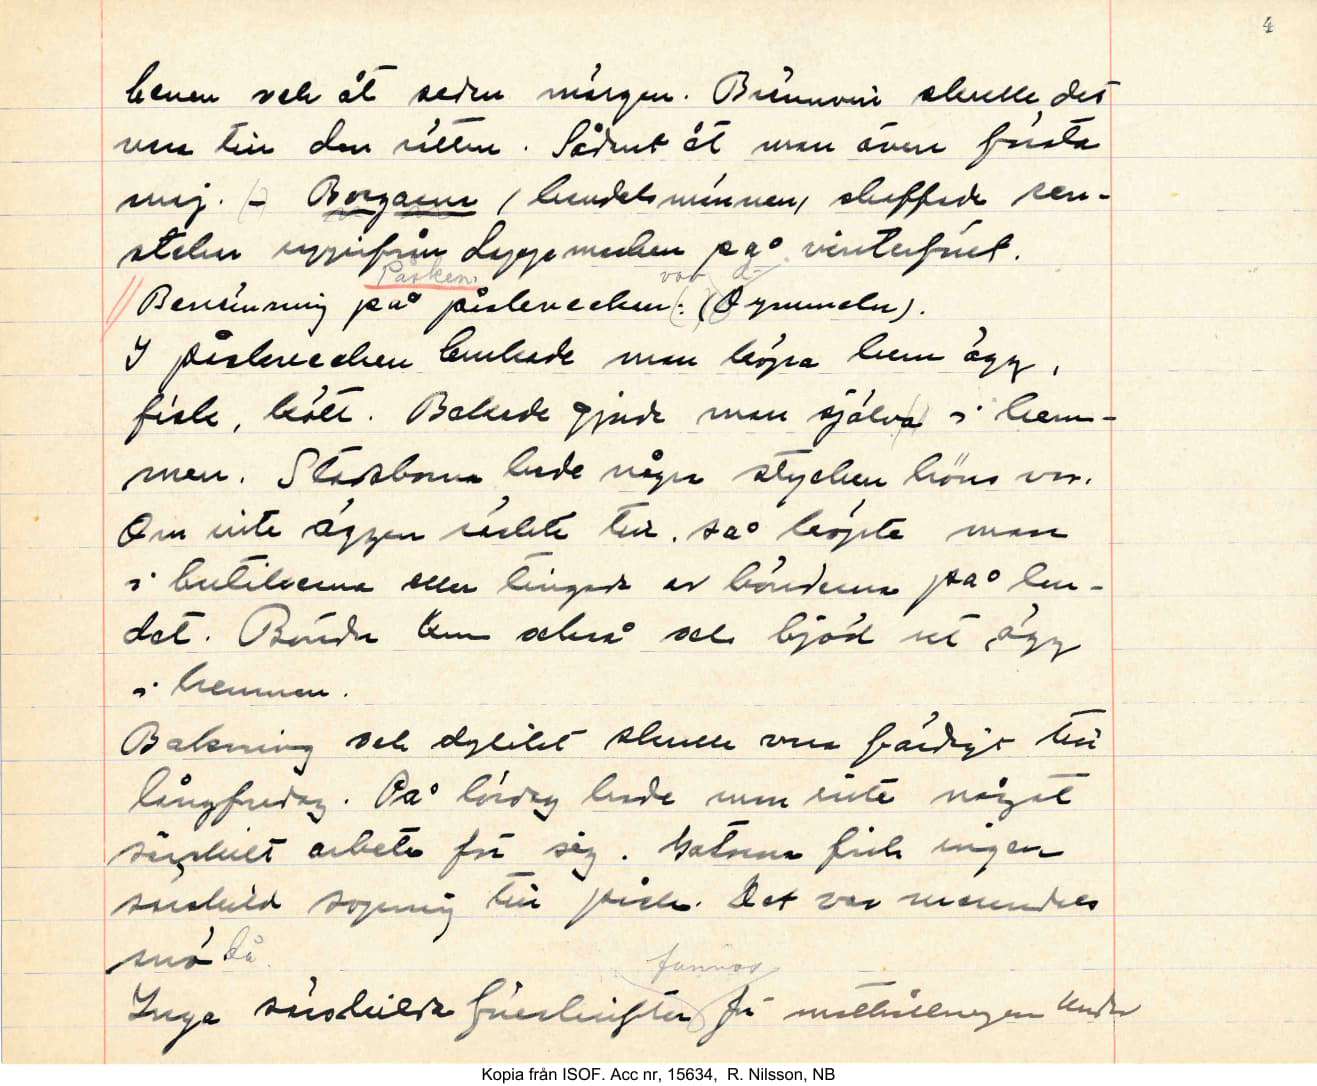 4
benen och åt sedan märgen. Brännvin skulle det
vara till den rätten. Sådant åt man även första
maj. (- Borgarna (handelsmännen) skaffade ren-
stekar uppifrån Lappmarken på vinterföret.
Påsken. var d-
Beredning på påskveckan: (Gymnelu).
I påskveckan brukade man köpa hem ägg,
fisk, kött. Bakade gjorde man själva i hem-
men. Stadsborna hade några stycken höns var.
Om inte äggen räckte till, så köpte man
i butikerna eller tingade av bönderna på lan-
det. Bönder kom också och bjöd ut ägg
i hemmen.
Bakning och dylikt skulle vara färdigt till
långfredag. På lördag hade man inte något
särskilt arbete för sig. Gatorna fick ingen
särskild sopning till påsk. Det var merendels
snö då.
funnos
Inga särskilda föreskrifter för mathållningen under
Kopia från ISOF. Acc nr, 15634, R. Nilsson, NB